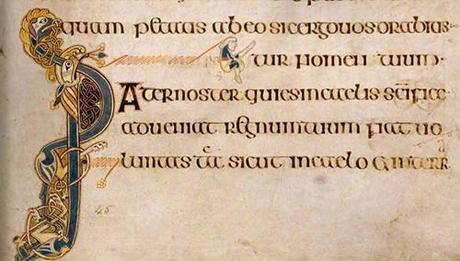 quam petatis abeo sic ergo uos orabitis
tur nomen tuum·
Pater noster qui es in caelis sc̄ifice
adueniat regnum tuum fiat uo
luntas tā sicut in caelo & in terr
45